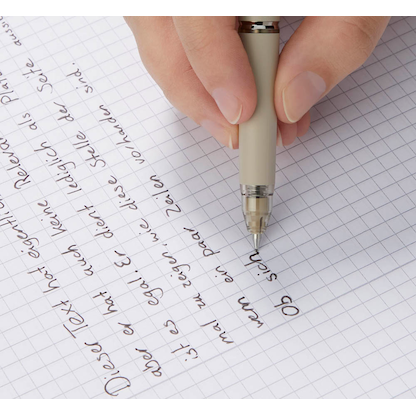 Dieser Text hat eigentlic
aber er hat auch keine Relevan
ist es egal. Er dient lediglich als Platz
mal zu zeigen, wie diese Stelle der Seite aussi
wenn ein paar Zeilen vorhanden sind.
Ob sich